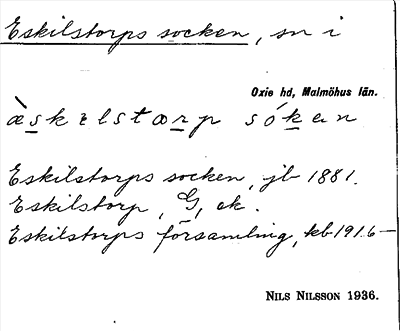 Eskilstorps socken, sn i
Oxie hd, Malmöhus län.
æ̀skɪlstarp sókan
Eskilstorps socken, jb 1881.
Eskilstorp, G, ek.
Eskilstorps församling, kb 1916—
NILS NILSSON 1936.